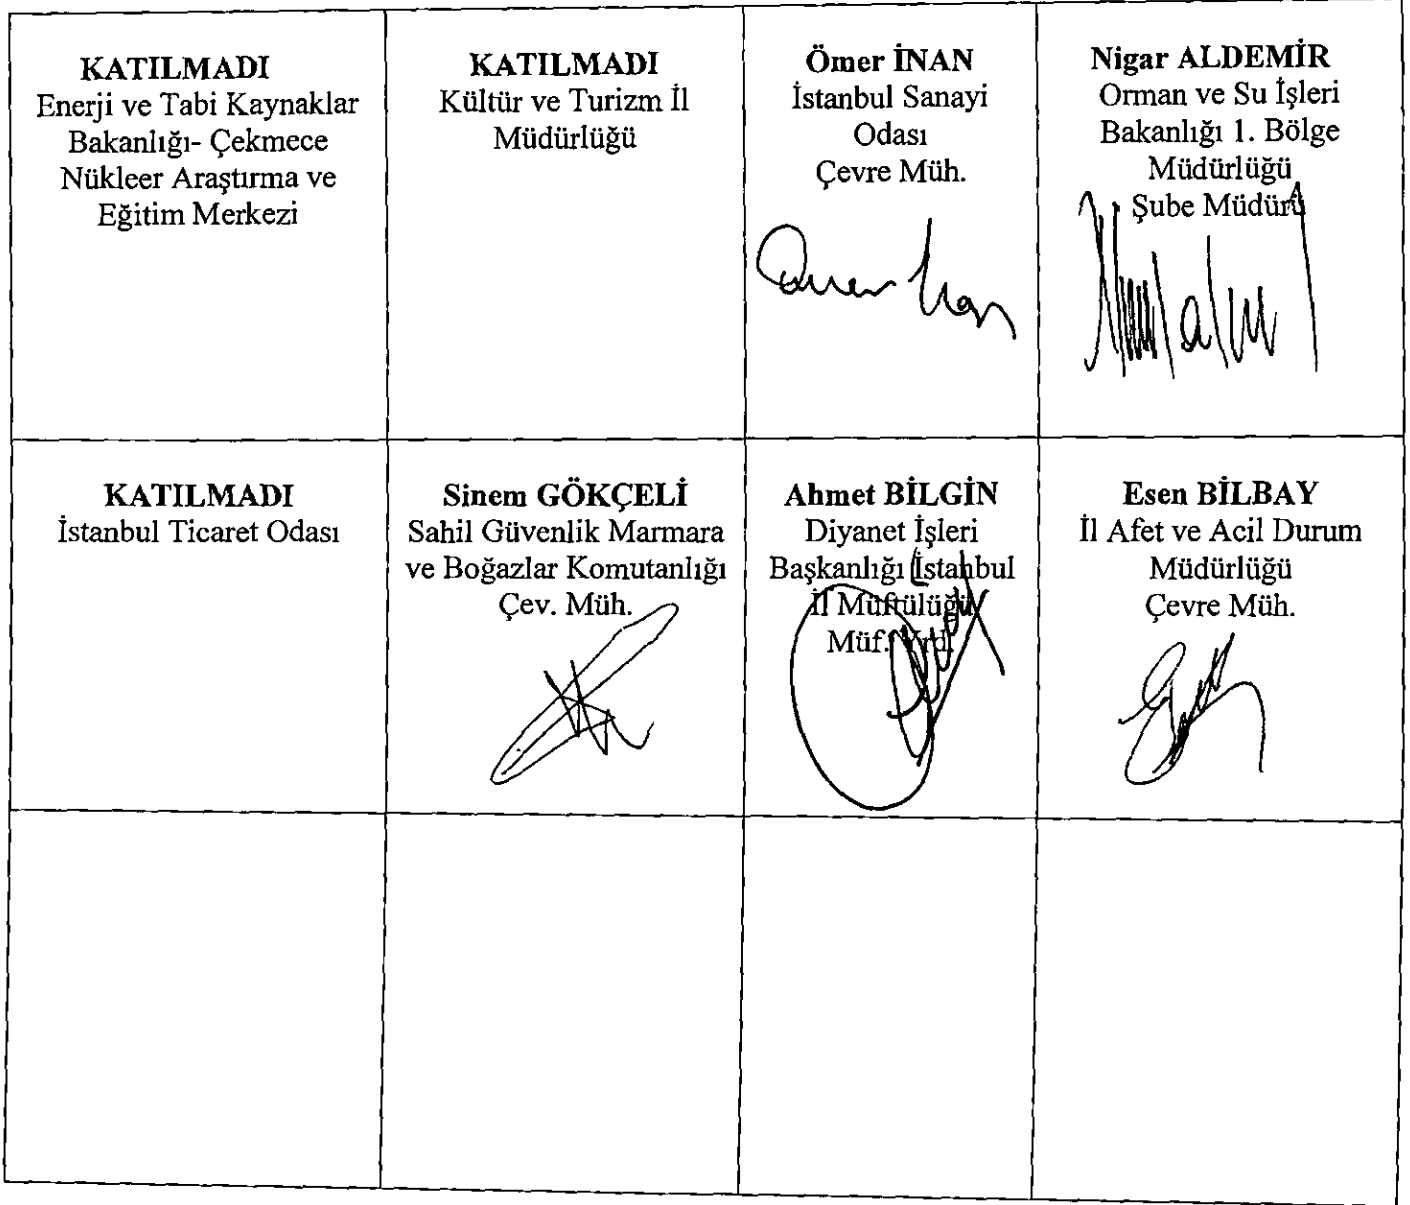 KATILMADI
Enerji ve Tabi Kaynaklar
Bakanlığı- Çekmece
Nükleer Araştırma ve
Eğitim Merkezi
KATILMADI
Kültür ve Turizm İl
Müdürlüğü
Ömer İNAN
İstanbul Sanayi
Odası
Çevre Müh.
Ömer İnan
Nigar ALDEMİR
Orman ve Su İşleri
Bakanlığı 1. Bölge
Müdürlüğü
Şube Müdürü
KATILMADI
İstanbul Ticaret Odası
Sinem GÖKÇELİ
Sahil Güvenlik Marmara
ve Boğazlar Komutanlığı
Çev. Müh.
Ahmet BİLGİN
Diyanet İşleri
Başkanlığı İstanbul
İl Müftülüğü
Müf. Yrd.
Esen BİLBAY
İl Afet ve Acil Durum
Müdürlüğü
Çevre Müh.